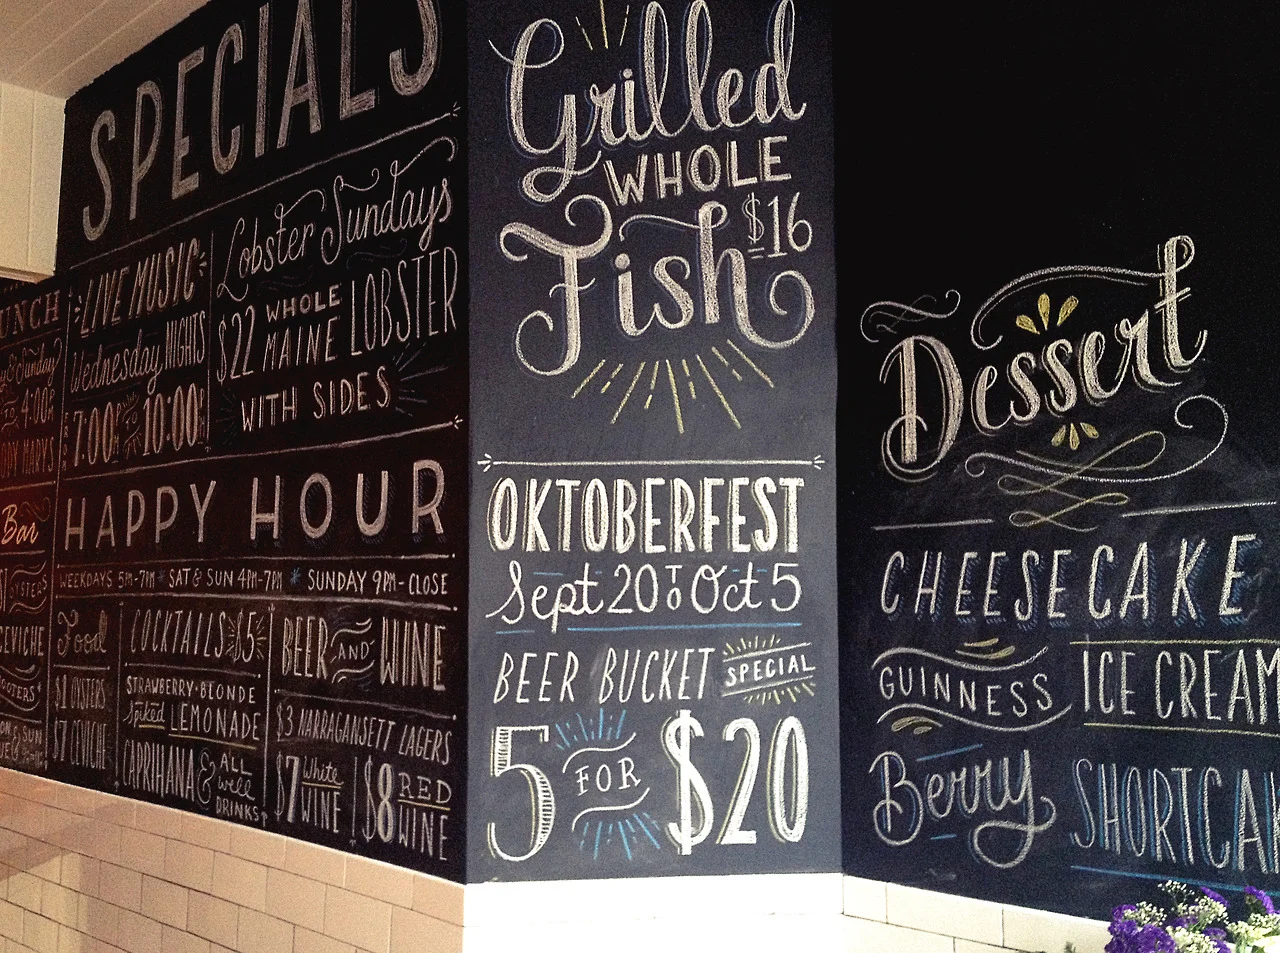 SPECIALS
LIVE MUSIC
Wednesday NIGHTS
7:00PM TO 10:00PM
Lobster Sundays
$22 WHOLE MAINE LOBSTER
WITH SIDES
HAPPY HOUR
WEEKDAYS 5PM-7PM * SAT & SUN 4PM-7PM * SUNDAY 9PM-CLOSE
Food
$1 OYSTERS
$7 CEVICHE
COCKTAILS $5
STRAWBERRY·BLONDE
Spiked LEMONADE
CAPRIHANA & ALL well DRINKS
BEER AND WINE
$3 NARRAGANSETT LAGERS
$7 White WINE
$8 RED WINE
UNCH
& Sunday
TO 4:00P
MARYS
Bar
OYSTERS
CEVICHE
OOTERS
Grilled
WHOLE
Fish $16
OKTOBERFEST
Sept 20 TO Oct 5
BEER BUCKET SPECIAL
5 FOR $20
Dessert
CHEESECAKE
GUINNESS ICE CREAM
Berry SHORTCAK